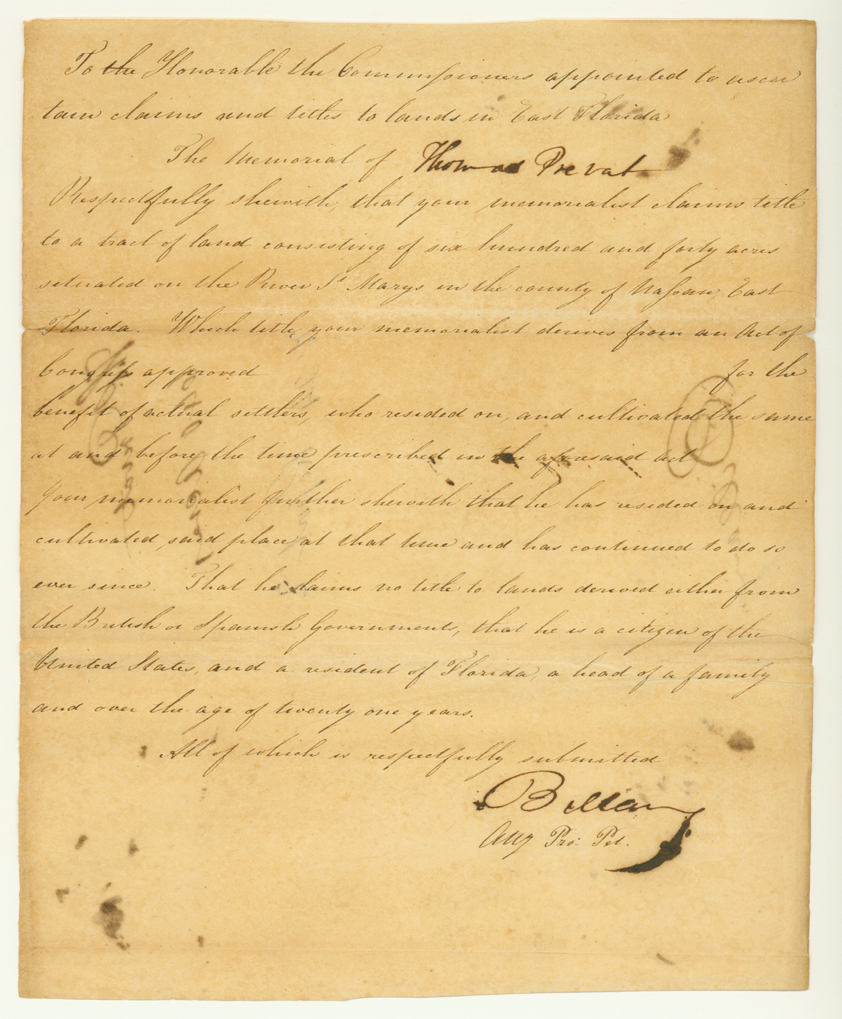 To the Honorable the Commissioners appointed to ascer
tain claims and titles to lands in East Florida
The Memorial of Thomas Prevat
Respectfully sheweth, that your memorialist claims title
to a tract of land consisting of six hundred and forty acres
situated on the River St Marys in the county of Nassau, East
Florida. Which title your memorialist derives from an Act of
Congress approved for the
benefit of actual settlers, who resided on, and cultivated the same
at and before the time prescribed in the aforesaid act
Your memorialist further sheweth that he has resided on and
cultivated said place at that time and has continued to do so
ever since. That he claims no title to lands derived either from
the British or Spanish Governments, that he is a citizen of the
United States, and a resident of Florida, a head of a family
and over the age of twenty one years.
All of which is respectfully submitted
Atty Pro: Pet.